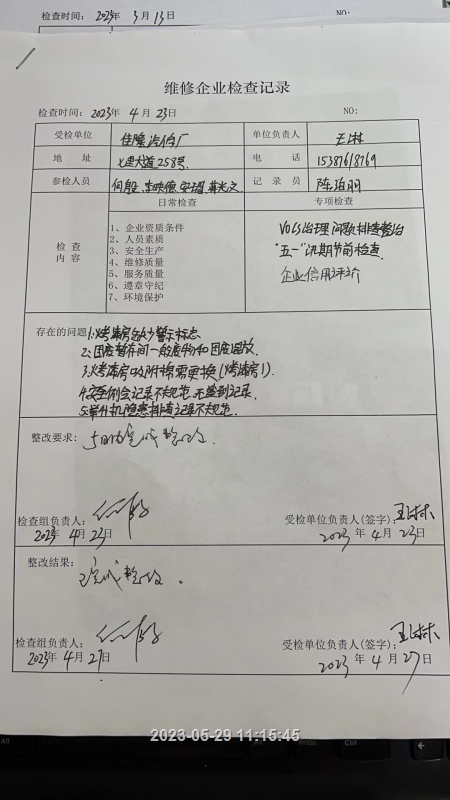 检查时间: 2023年 3月 13日 NO:
维修企业检查记录
检查时间: 2023年 4月 23日 NO:
受检单位 佳隆汽修厂 单位负责人 王林
地 址 大道258号 电 话 15387618769
参检人员 记录员
日常检查 专项检查
检查内容
1、企业资质条件
2、人员素质
3、安全生产
4、维修质量
5、服务质量
6、遵章守纪
7、环境保护
VOCS治理问题排查整治
"五一"汛期节前检查.
企业信用评价
存在的问题 1.烤漆房缺少警示标志
2.固废暂存间一般废物和固废混放.
3.烤漆房吸附棉需更换(烤漆房1).
4.安全例会记录不规范,无签到记录.
5.举升机隐患排查记录不规范.
整改要求: 5日内完成整改.
检查组负责人: 受检单位负责人(签字): 王林
2023年 4月 23日 2023年 4月 23日
整改结果: 已完成整改.
检查组负责人: 受检单位负责人(签字): 王林
2023年 4月 27日 2023年 4月 27日
2023-05-29 11:15:45
Alt
Ctrl